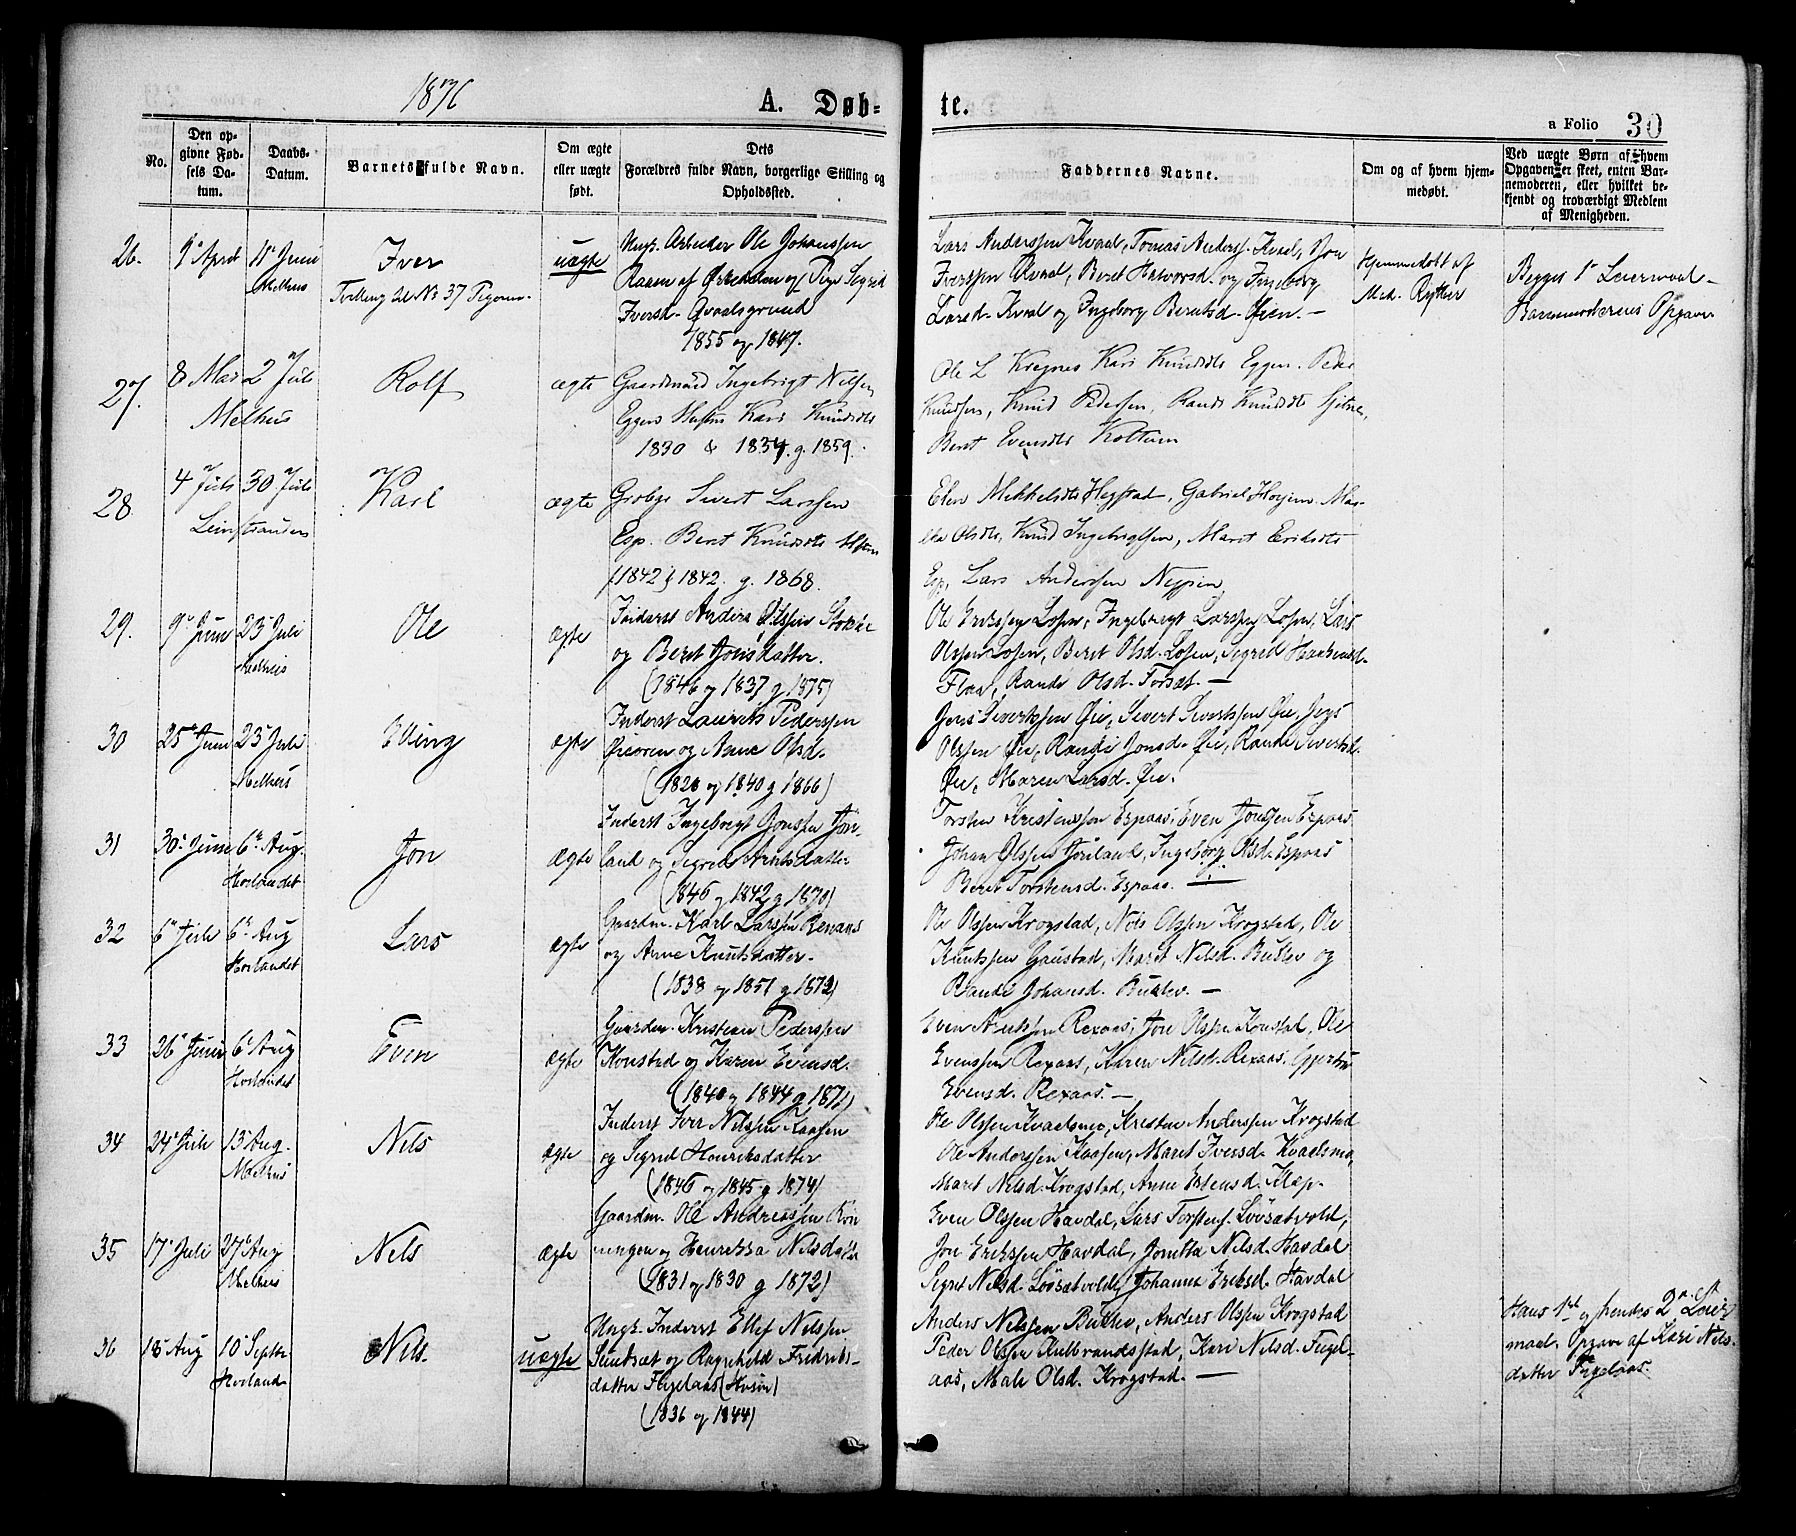 1876
A. Døb-
te.
a Folio 30
No.
Den op-
givne Fød-
sels Da-
tum.
Daabs-
Datum.
Barnets fulde Navn.
Om ægte
eller uægte
født.
Dets
Forældres fulde Navn, borgerlige Stilling og
Opholdssted.
Faddernes Navne.
Om og af hvem hjem-
medøbt.
Ved uægte Børn af hvem
Opgaven er skeet, enten Bar-
nemoderen, eller hvilket be-
kjendt og troværdigt Medlem
af Menigheden.
26.
April
11 Juni
Melhus
Iver
Tvilling til No 37 Pigerne.
uægte
Ungk. Arbeider Ole Johanssen
af Ørkedalen og Pige Sigrid
Iversd. Qvaalsgrund
1855 og 1847.
Lars Anderssen Kvaal, Tomas Anderss. Kvaal, Jon
Iverssen Kvaal, Beret Halvorsd. og Ingeborg
Larsd. Kvaal og Ingeborg Berntsd. Øien. —
Hjemmedøbt af
Med. Rytter
Begges 1ste Leiermaal
Barnemoderens Opgave
27.
8 Mai
2 Juli
Melhus
Rolf
ægte
Gaardmand Ingebrigt Nilsen
Eggen Hustru Kari Knudsdt
1830 & 1834. g. 1859.
Ole L Krognes Kari Knudsdt Eggen. Peder
Knudsen, Knud Pedersen, Randi Knudsdt
Beret Evensdt
28
4 Juli
30 Juli
Leinstranden
Karl
ægte
Sivert Larssen
Esp. Beret Knudsdt
(1842 & 1842. g. 1868.
Elen Mikkelsdt Hegstad, Gabriel Horjem. Mar-
Olsdt, Knud Ingebrigtsen, Marit Eriksdt
Esp, Lars Anderssen Nypen
29.
9 Juni
23 Juli
Melhus
Ole
ægte
Inderst Anders Olssen
og Beret Jonsdatter.
(1846 og 1837 g 1875)
Ole Erikssen Losen, Ingebrigt Larssen Losen, Lars
Olssen Losen, Beret Olsd. Losen, Sigrid
Flaa, Randi Olsd. Forsæt. —
30
25 Juni
23 Juli
Melhus
Eling
ægte
Inderst Laurits Pederssen
Øieoren og Anne Olsd.
(1828 og 1840 g 1866)
Jens Sivertssen Øie, Sivert Sivertssen Øie, Jens
Olssen Øie, Randi Jonsd. Øie, Randi Sivertsd.
Øie, Maren Larsd. Øie.
31
30 Juni
6 Aug.
Hovlandet
Jon
ægte
Inderst Ingebrigt Jonssen Jon-
land og Sigrid Arntsdatter
(1846 og 1842 g 1870)
Torsten Kristenssen Espaas, Even Espaas.
Johan Olssen Jonland, Ingeborg Olsd. Espaas
Beret Torstensd. Espaas. —
32
6 Juli
6 Aug
Hovlandet
Lars
ægte
Gaardm. Karl Larssen Rexaas
og Anne Knutsdatter.
(1838 og 1851 g 1872)
Ole Olssen Krogstad, Nils Olssen Krogstad, Ole
Knutssen Gaustad, Marit Nilsd. Buklev og
Randi Johansd. Buklev. —
33
26 Juni
6 Aug
Hovlandet
Even
ægte
Gaardm. Kristian Pederssen
Konstad og Karen Evensd.
(1840 og 1844 g 1871)
Even Arntssen Rexaas, Jon Olssen Konstad, Ole
Evenssen Rexaas, Karen Nilsd. Rexaas.
Evensd. Rexaas. —
34
24 Juli
13 Aug.
Melhus
Nils
ægte
Inderst Iver Nilssen Kaasen
og Sigrid Henriksdatter
(1846 og 1845 g 1874)
Ole Olssen Kvaalsmo, Kristen Anderssen Krogstad
Ole Anderssen Kaasen, Marit Iversd. Kvaalsmo,
Marit Nilsd. Krogstad, Anne Estensd. Klæp.
35
17 Juli
27 Aug
Melhus
Nels
ægte
Gaardm. Ole Andreassen Røn
ningen og Henrikka Nilsdatter
(1831 og 1830 g 1872)
Even Olssen Havdal, Lars Torstens. Løvsætvold,
Jon Erikssen Havdal, Jonetta Nilsd. Havdal
Sigrit Nilsd. Løvsætvold, Johanna Eriksd. Havdal
36
18 Aug
10 Septbr
Hovland
Nils.
uægte
Ungk. Inderst Ellef Nilssen
og Ragnhild Fredriks-
datter Fugelaas
(1836 og 1844)
Anders Nilssen Buklev, Anders Olssen Krogstad
Peder Olssen Kulbrandsstad, Kari Nilsd. Fugel-
aas, Mali Olsd. Krogstad. —
Hans 1ste og hendes 2det Leier
maal. Opgave af Kari Nils-
datter Fugelaas.